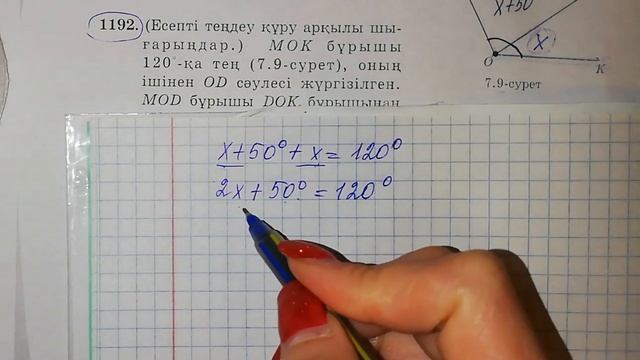 1192. (Есепті теңдеу құру арқылы шы-
ғарыңдар.) MOK бұрышы
120°-қа тең (7.9-сурет), оның
ішінен OD сәулесі жүргізілген.
MOD бұрышы DOK бұрышынан
x+50
x
O
K
7.9-сурет
x+50°+x=120°
2x+50°=120°